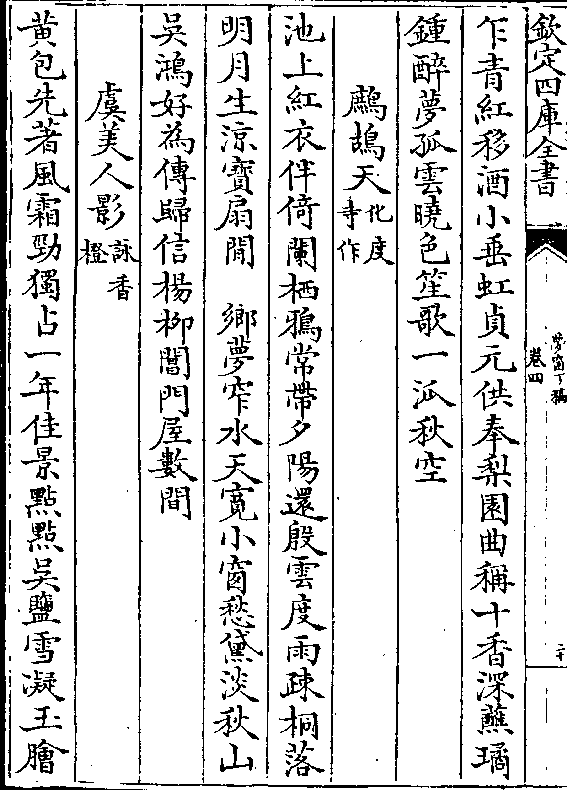 欽定四庫全書
夢窗丁稿
卷四
二十
乍青紅移酒小垂虹貞元供奉梨園曲稱十香深蘸瓊
鍾醉夢孤雲曉色笙歌一派秋空
鷓鴣天化度寺作
池上紅衣伴倚闌栖鴉常帶夕陽還殷雲度雨疎桐落
明月生涼寶扇閒　鄉夢窄水天寛小窗愁黛淡秋山
吳鴻好為傳歸信楊柳閶門屋數間
虞美人影詠香橙
黄包先著風霜勁獨占一年佳景點點吳鹽雪凝玉膾